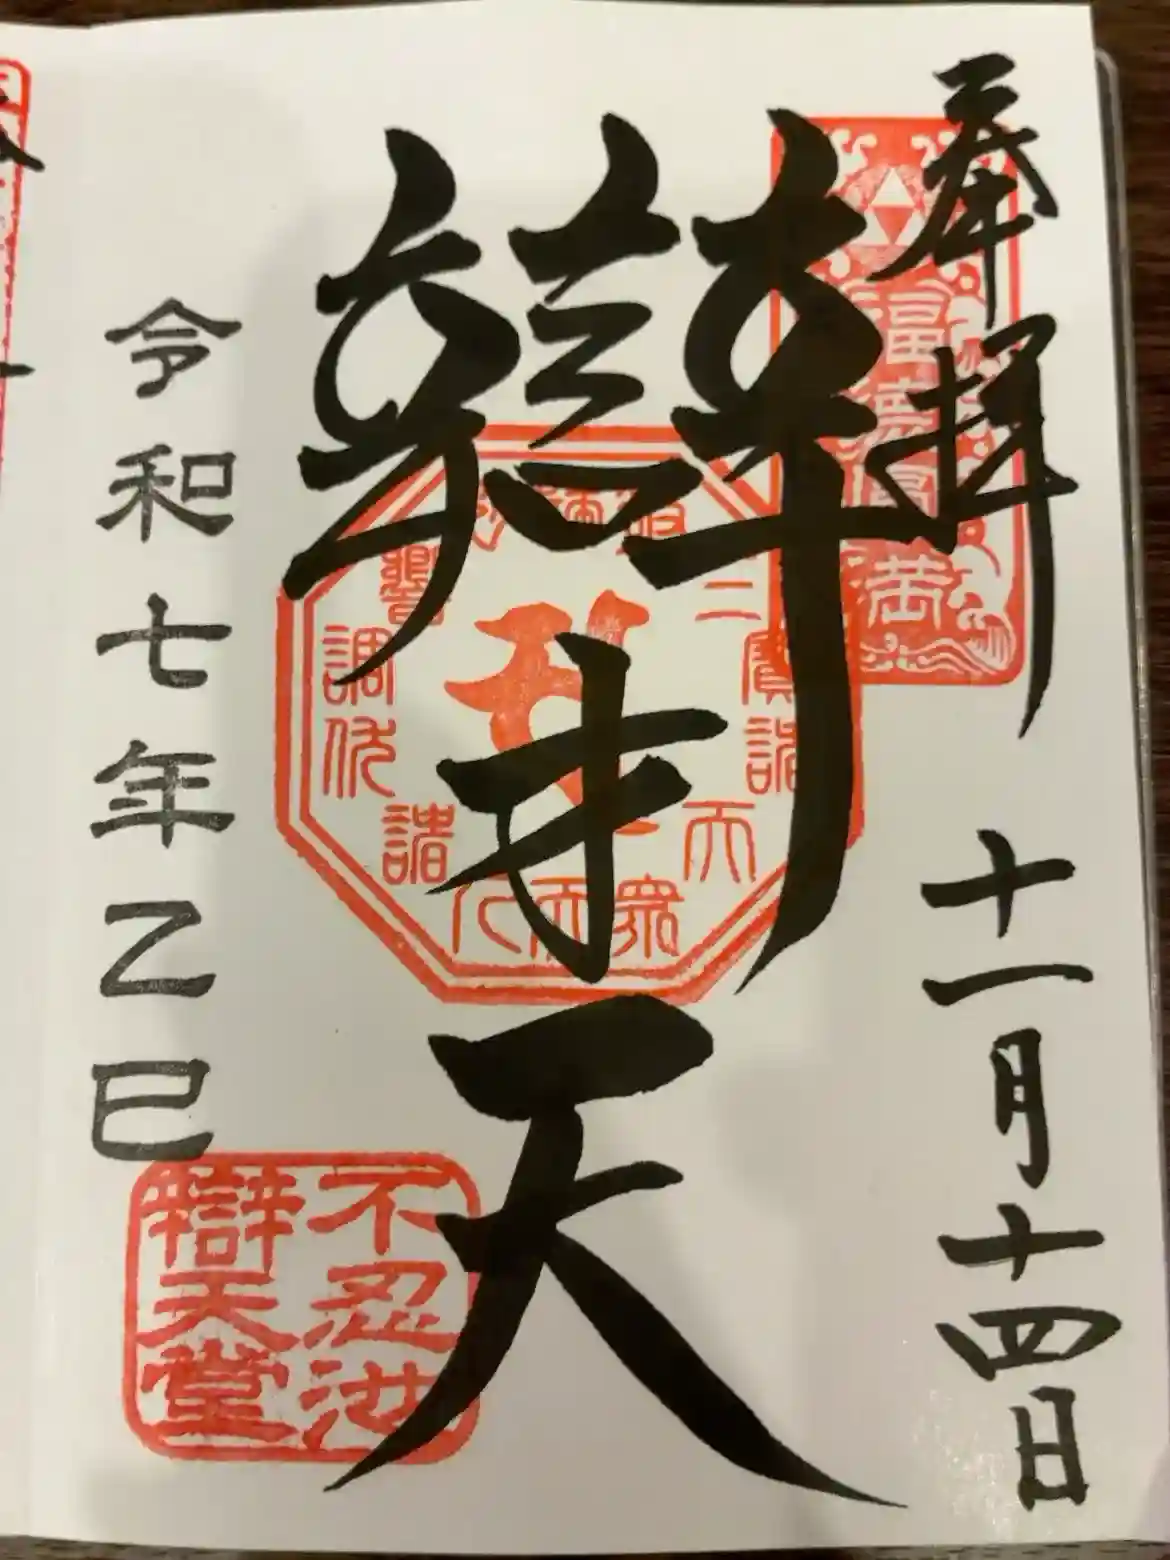 奉拝
十一月十四日
福徳冨満
辯才天
令和七年乙巳
不忍池
辯天堂